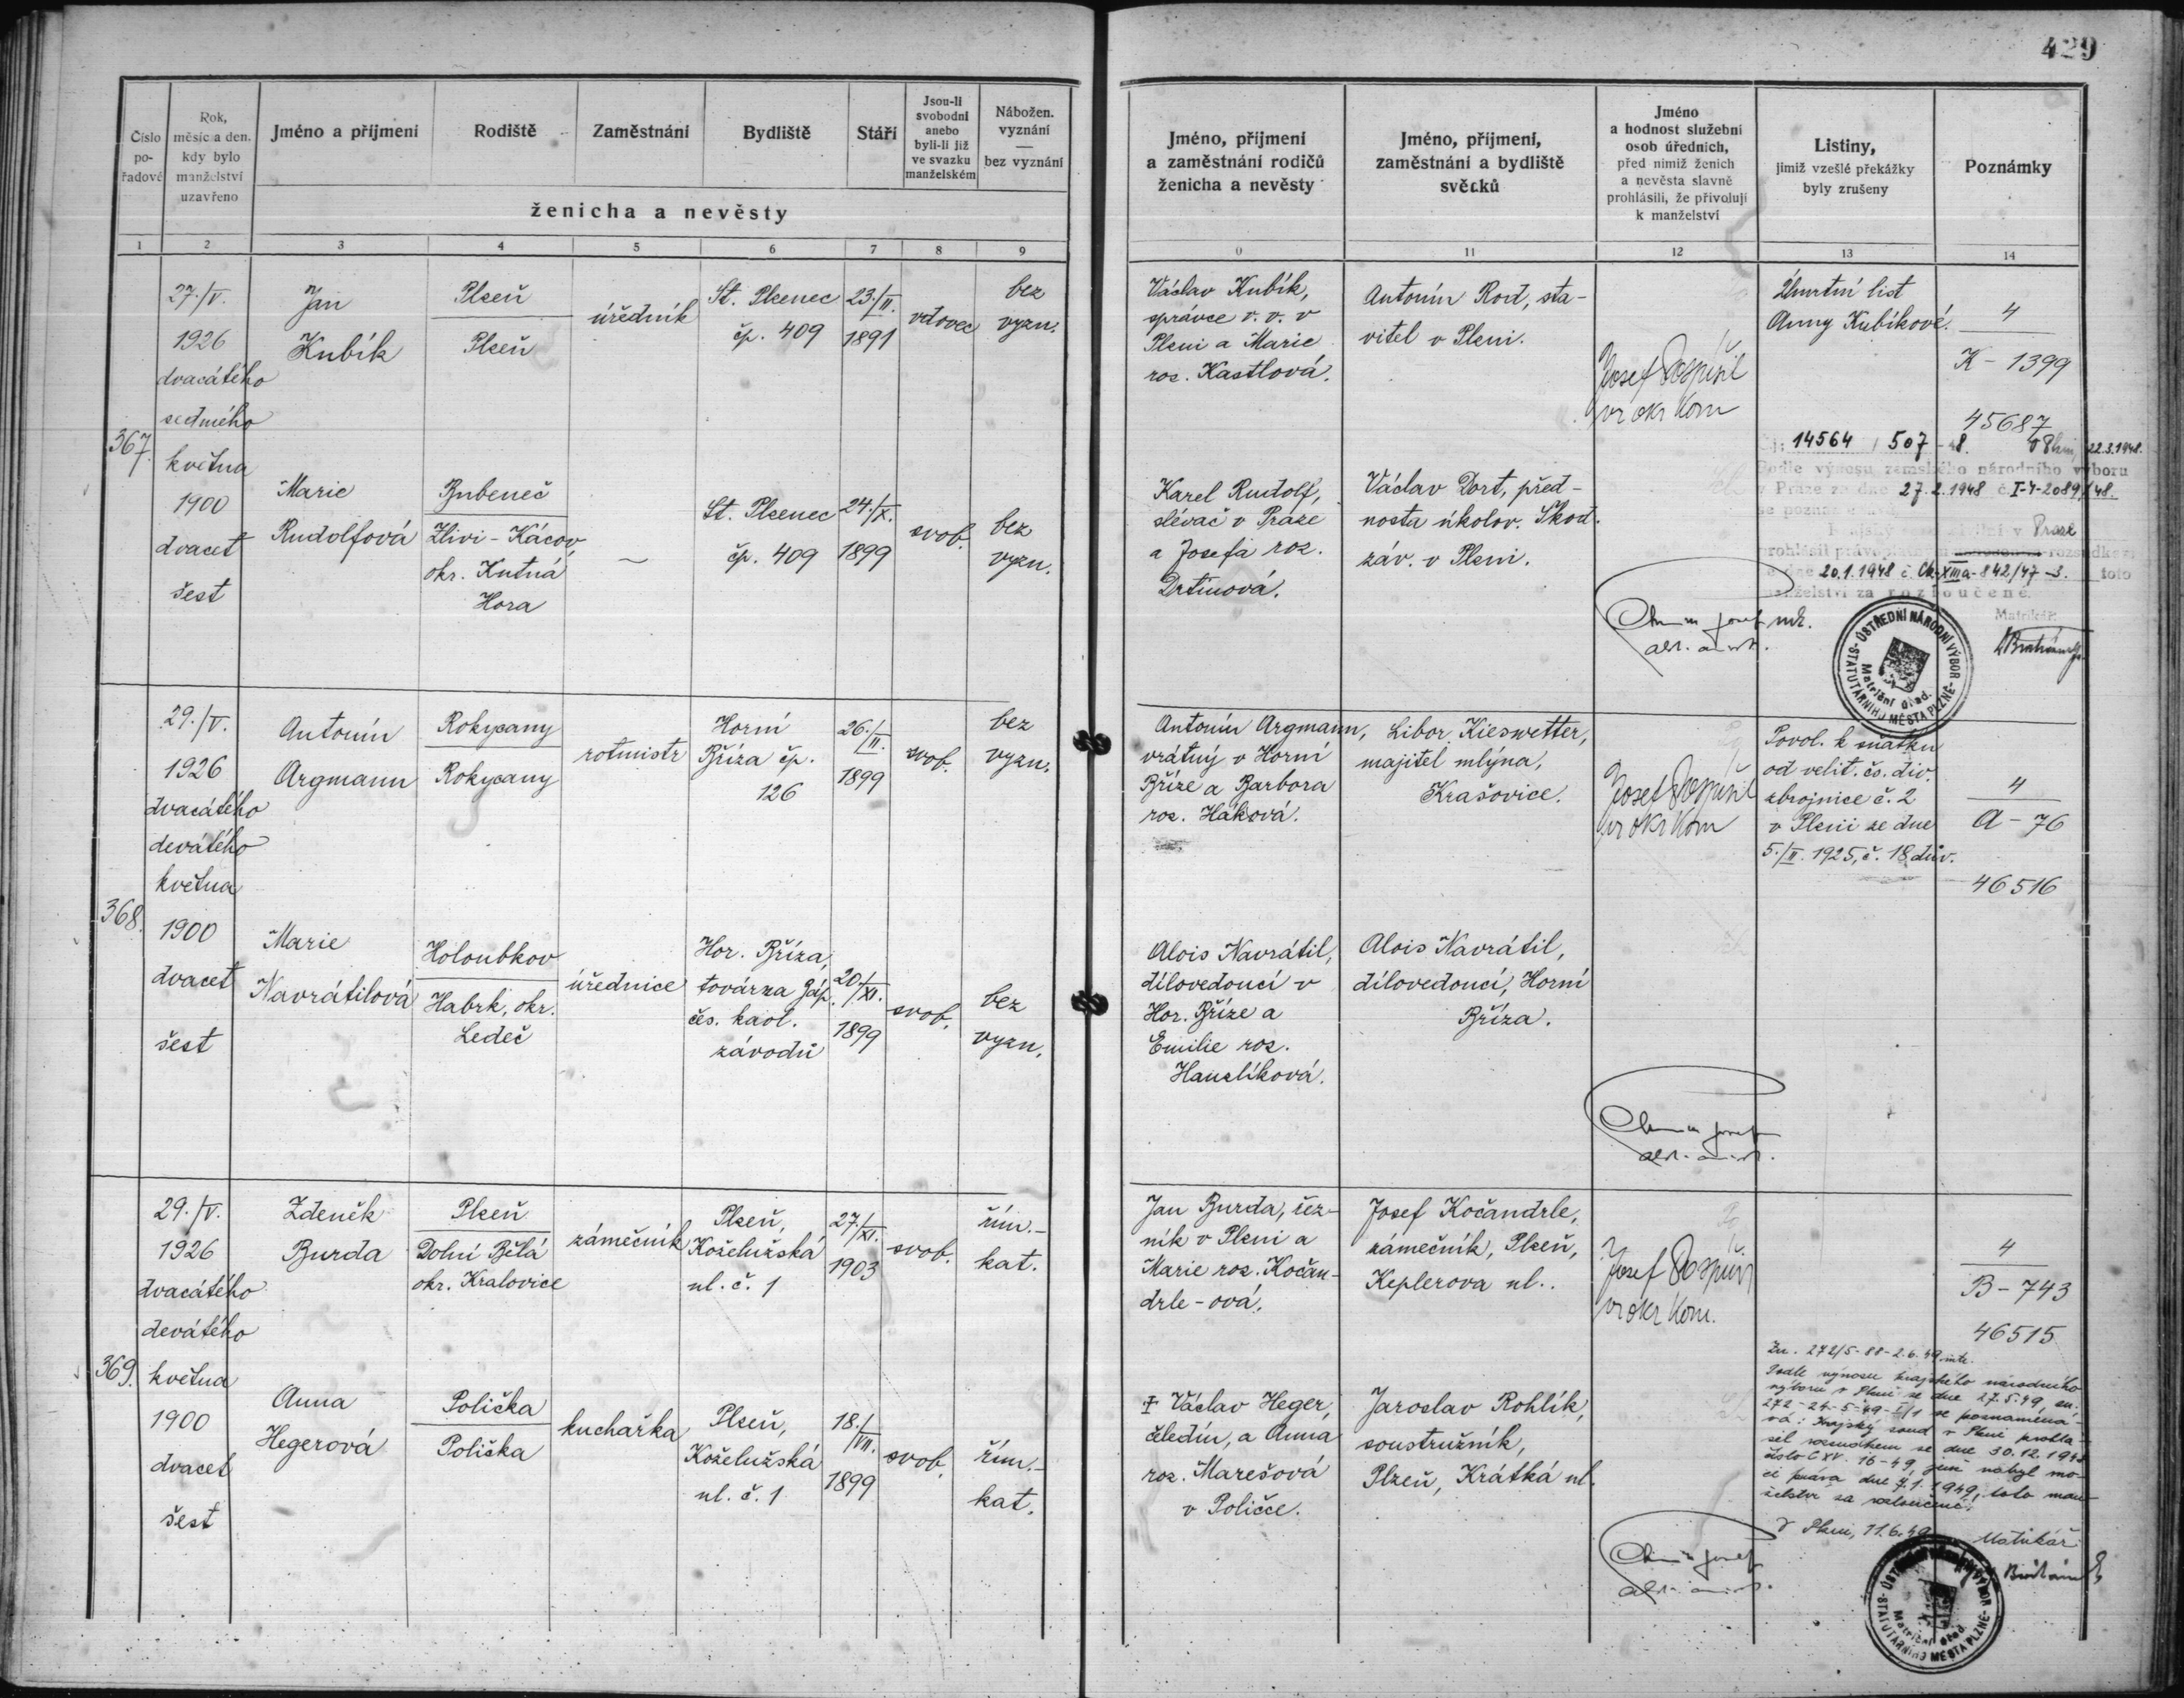 429
Číslo po-řadové
Rok, měsíc a den. kdy bylo manželství uzavřeno
Jméno a příjmení
Rodiště
Zaměstnání
Bydliště
Stáří
Jsou-li svobodni anebo byli-li již ve svazku manželském
Nábožen. vyznání — bez vyznání
ženicha a nevěsty
Jméno, příjmení a zaměstnání rodičů ženicha a nevěsty
Jméno, příjmení, zaměstnání a bydliště svědků
Jméno a hodnost služební osob úředních, před nimiž ženich a nevěsta slavně prohlásili, že přivolují k manželství
Listiny, jimiž vzešlé překážky byly zrušeny
Poznámky
1 2 3 4 5 6 7 8 9 0 11 12 13 14
367.
27./V.
1926
dvacátého
sedmého
května
1900
dvacet
šest
Jan
Kubík
Plzeň
Plzeň
úředník
St. Plzenec
čp. 409
23./II.
1891
vdovec
bez
vyzn.
Václav Kubík,
správce v. v. v
Plzni a Marie
roz. Kastlová.
Antonín Rod, sta-
vitel v Plzni.
Josef Pospíšil
vr okr kom
Úmrtní list
Anny Kubíkové.
4
K - 1399
45687
Marie
Rudolfová
Bubeneč
Zlivi - Kácov,
okr. Kutná
Hora
—
St. Plzenec
čp. 409
24./X.
1899
svob.
bez
vyzn.
Karel Rudolf,
slévač v Praze
a Josefa roz.
Drtinová.
Václav Dort, před-
nosta úkolov. Škod.
záv. v Plzni.
14564 / 507 - 48. 22.3.1948.
Podle výnosu zemského národního výboru
v Praze ze dne 27.2.1948 č. I-4-2089/48.
se pozna
v Praze
prohlásil rozsudkem
ze dne 20.1.1948 č. Ck XIIIa-842/47-3. toto
manželství za rozloučené.
Matrikář:
ÚSTŘEDNÍ NÁRODNÍ VÝBOR
STATUTÁRNÍHO MĚSTA PLZNĚ
Matriční úřad.
368.
29./V.
1926
dvacátého
devátého
května
1900
dvacet
šest
Antonín
Argmann
Rokycany
Rokycany
rotmistr
Horní
Bříza čp.
126
26./II.
1899
svob.
bez
vyzn.
Antonín Argmann,
vrátný v Horní
Bříze a Barbora
roz. Háková.
Libor Kieswetter,
majitel mlýna,
Krašovice.
Josef Pospíšil
vr okr kom
Povol. k sňatku
od velit. čs. div.
zbrojnice č. 2
v Plzni ze dne
5./II. 1925, č. 18 dův.
4
A - 76
46516
Marie
Navrátilová
Holoubkov
Habrk, okr.
Ledeč
úřednice
Hor. Bříza,
továrna Záp.
čes. kaol.
závodů
20./XI.
1899
svob.
bez
vyzn.
Alois Navrátil,
dílovedoucí v
Hor. Bříze a
Emilie roz.
Hanslíková.
Alois Navrátil,
dílovedoucí, Horní
Bříza.
369.
29./V.
1926
dvacátého
devátého
května
1900
dvacet
šest
Zdeněk
Burda
Plzeň
Dolní Bělá
okr. Kralovice
zámečník
Plzeň,
Koželužská
ul. č. 1
27./XI.
1903
svob.
řím.-
kat.
Jan Burda, řez-
ník v Plzni a
Marie roz. Kočan-
drle-ová.
Josef Kočandrle,
zámečník, Plzeň,
Keplerova ul..
Josef Pospíšil
vr okr kom.
4
B - 743
46515
Anna
Hegerová
Polička
Polička
kuchařka
Plzeň,
Koželužská
ul. č. 1
18./VII.
1899
svob.
řím.-
kat.
‡ Václav Heger,
čeledín, a Anna
roz. Marešová
v Poličce.
Jaroslav Rohlík,
soustružník,
Plzeň, Krátká ul.
Zn. 272/5-88-2.6.49
Podle výnosu krajského národního
výboru v Plzni ze dne 27.5.49, zn.
272-24-5-49-I/1 se poznamená-
vá: Krajský soud v Plzni prohlá-
sil rozsudkem ze dne 30.12.1948
číslo C XV. 16-49, jenž nabyl mo-
ci práva dne 7.1.1949, toto man-
želství za rozloučené.
V Plzni, 11.6.49 Matrikář
STATUTÁRNÍHO MĚSTA PLZNĚ
Matriční úřad